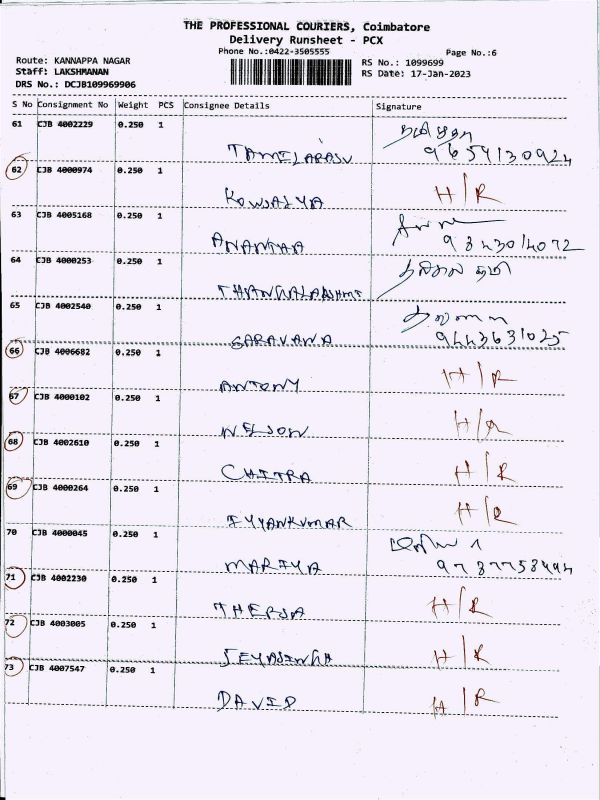 THE PROFESSIONAL COURIERS, Coimbatore
Delivery Runsheet - PCX
Phone No.:0422-3505555
Page No.:6
Route: KANNAPPA NAGAR
RS No.: 1099699
Staff: LAKSHMANAN
RS Date: 17-Jan-2023
DRS No.: DCJB109969906
S No Consignment No Weight PCS Consignee Details Signature
61 CJB 4002229 0.250 1
TAMILARASU 9654130924
62 CJB 4000974 0.250 1
KOWSALYA H/R
63 CJB 4005168 0.250 1
ANANTHA 9843014072
64 CJB 4000253 0.250 1
THANGALAKSHMI
65 CJB 4002540 0.250 1
SARAVANA 9443631025
66 CJB 4006682 0.250 1
ANTONY H/R
67 CJB 4000102 0.250 1
NELSON H/R
68 CJB 4002610 0.250 1
CHITRA H/R
69 CJB 4000264 0.250 1
IYYANKUMAR H/R
70 CJB 4000045 0.250 1
MARIYA 9787758494
71 CJB 4002230 0.250 1
THERSA H/R
72 CJB 4003005 0.250 1
JEYASINGH H/R
73 CJB 4007547 0.250 1
DAVID H/R